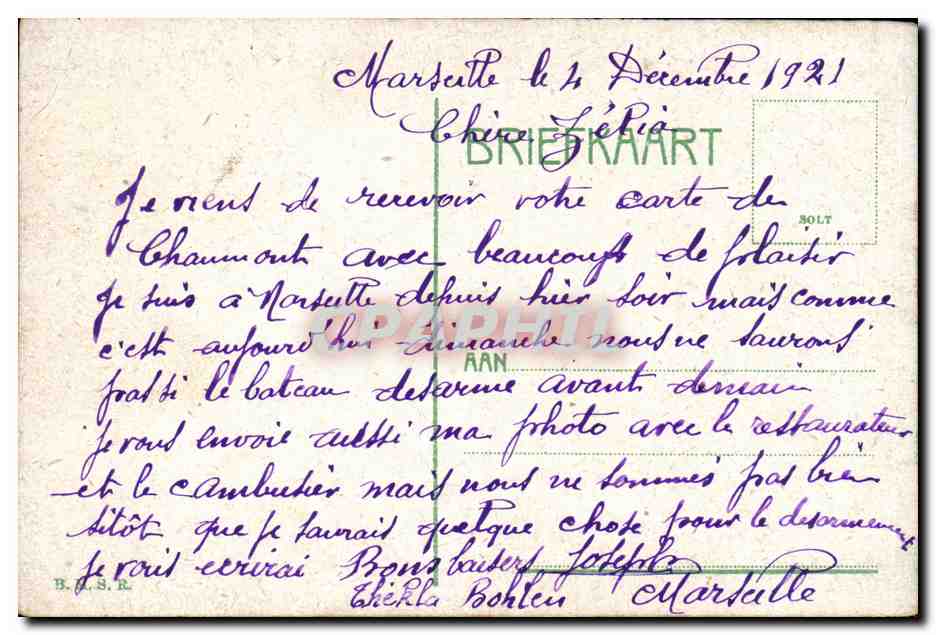 Marseille le 4 Décembre 1921
Chère Zélia
BRIEFKAART
SOLT
Je viens de recevoir votre carte de
Chaumont avec beaucoup de plaisir
Je suis a Marseille depuis hier soir mais comme
c'est aujourd'hui dimanche nous ne saurons
CPAPHIL
AAN
pas si le bateau desarme avant demain
je vous envoie aussi ma photo avec le restaurateur
et le cambusier mais nous ne sommes pas bien
sitôt que je saurais quelque chose pour le desarmement
je vous ecrirai Bons baisers Joseph
Thékla Bohlen Marseille